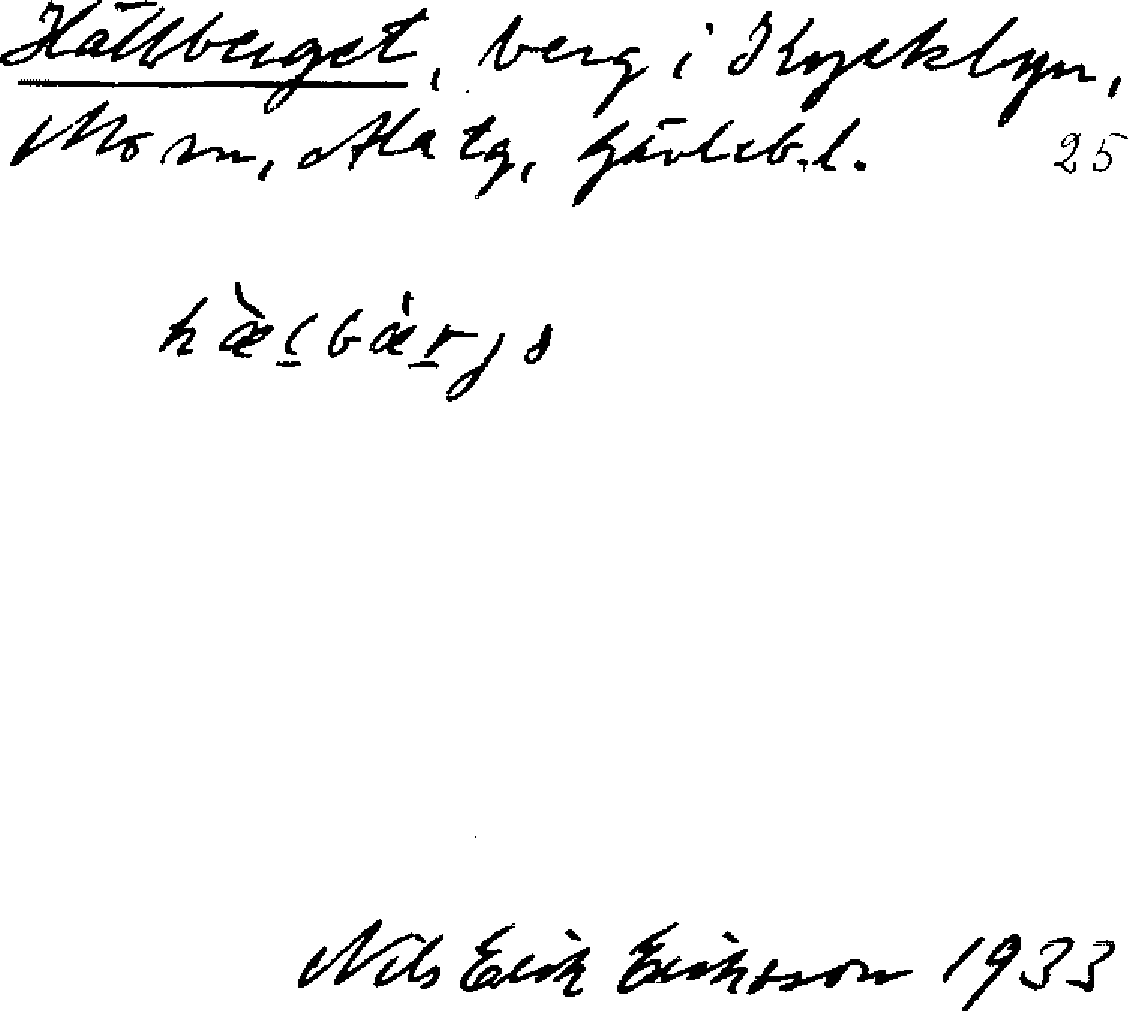 Hällberget, berg i Kycklyn,
Mo sn, Ala tg, Gävleb. l. 25
hæ̀l̠bær̠jə
Nils Erik Eriksson 1933